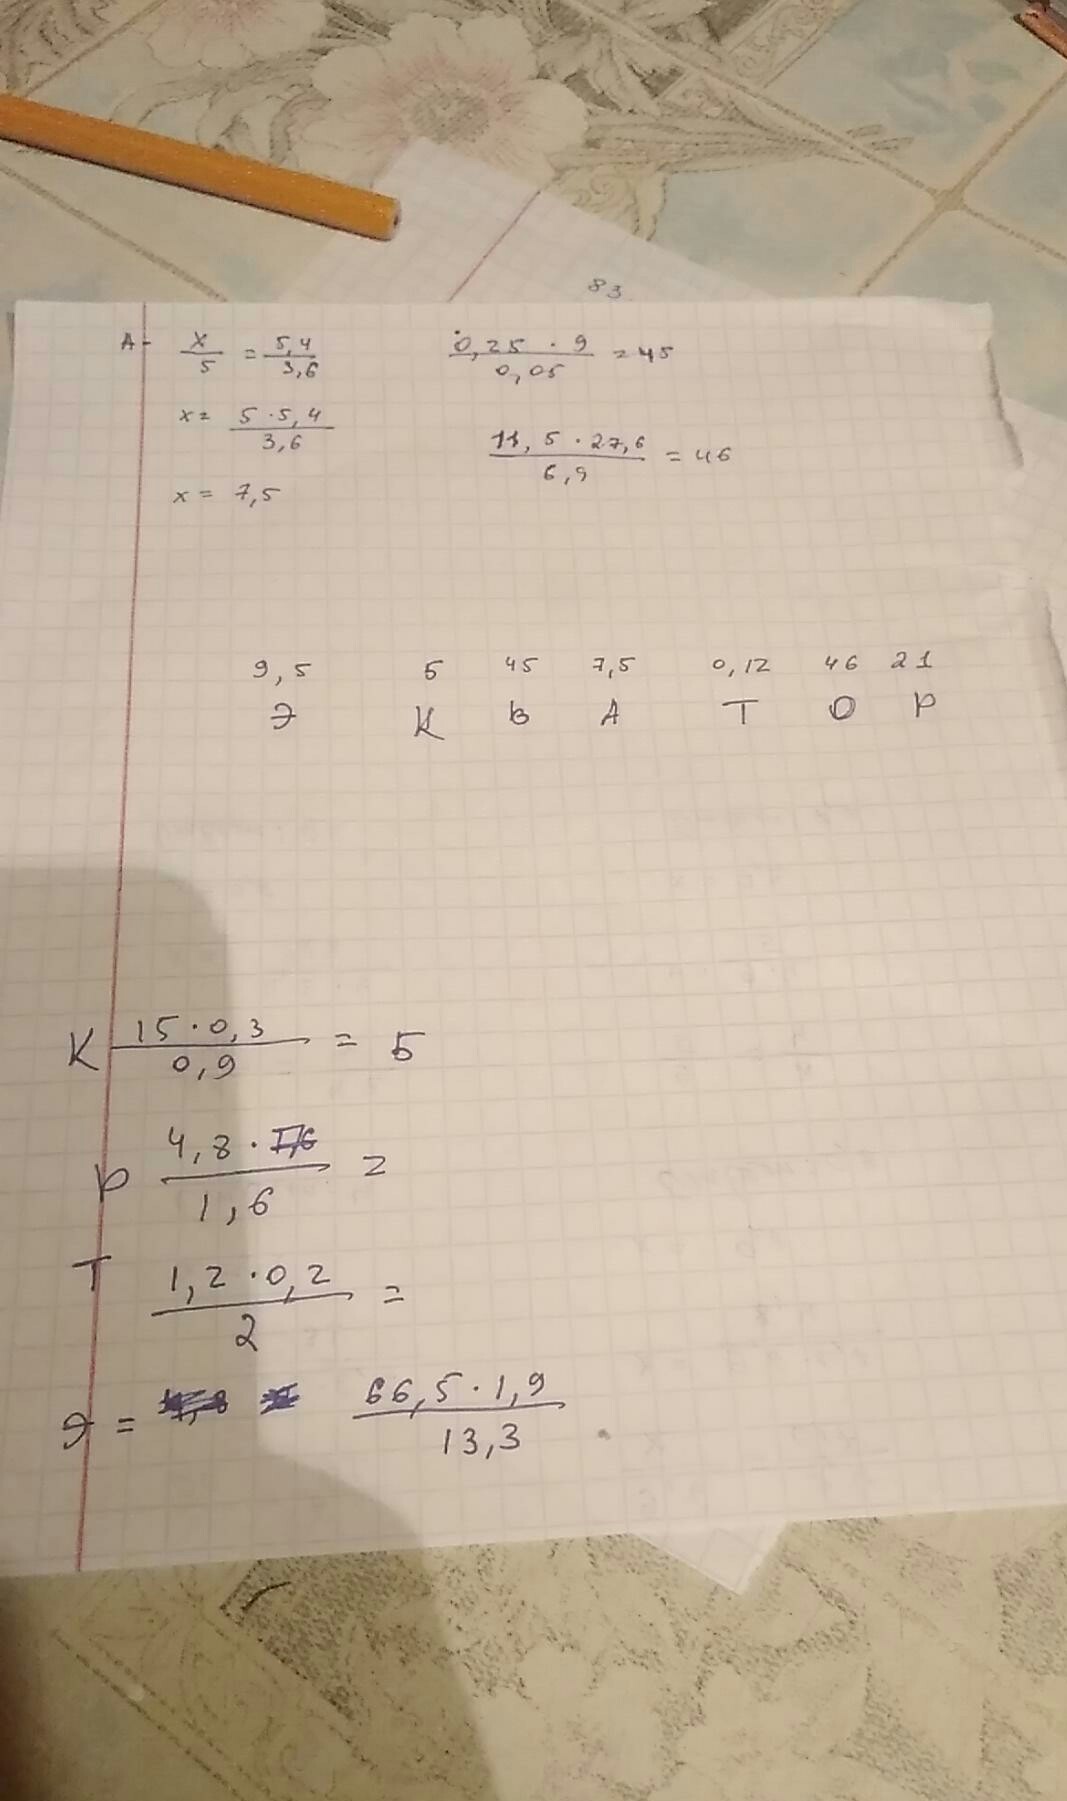 83
А- x/5 = 5,4/3,6
0,25 · 9/0,05 = 45
x = 5 · 5,4/3,6
11,5 · 27,6/6,9 = 46
x = 7,5
9,5 5 45 7,5 0,12 46 21
Э К В А Т О Р
К 15 · 0,3/0,9 = 5
Р 4,8 · /1,6 =
Т 1,2 · 0,2/2 =
Э = 66,5 · 1,9/13,3